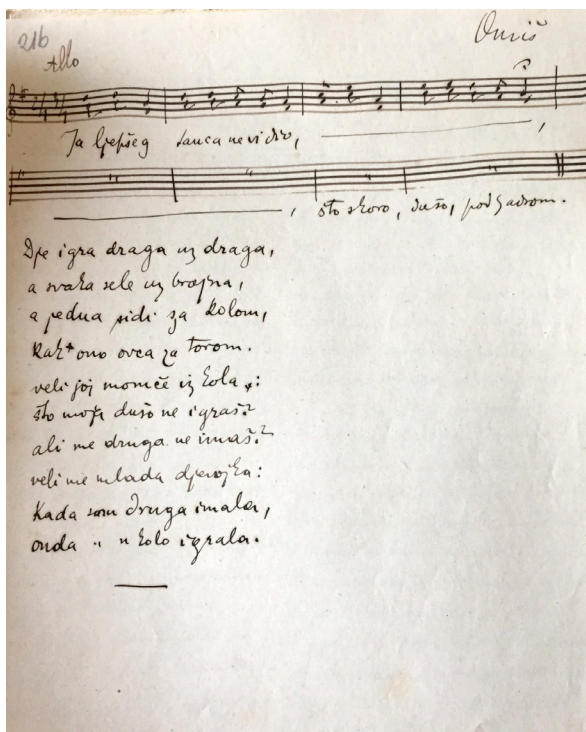 216
Omiš
Allo
Ja ljepšeg tanca ne vidio,
što skoro, dušo, pod Zadrom.
Dje igra draga uz draga,
a svaka sele uz brajna,
a jedna sidi za kolom,
kak ono ovca za torom.
veli joj momče iz kola:
što moja dušo ne igraš?
ali me druga ne imaš?
veli me mlada djevojka:
Kada sam druga imala,
onda " u kolo igrala.